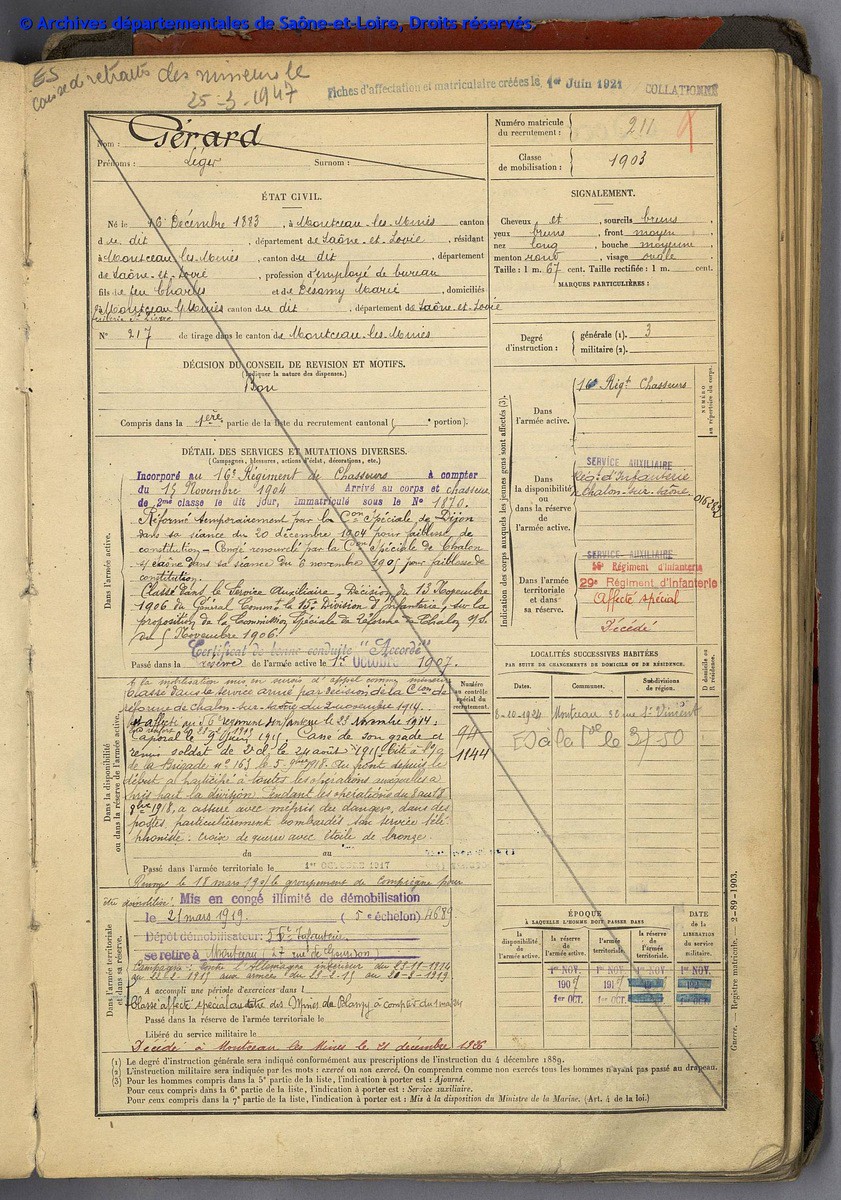 © Archives départementales de Saône-et-Loire, Droits réservés.
ES
Caisse d retraite des mineurs le
25-3-1947
Fiches d'affectation et matriculaire créées le, 1er Juin 1921 COLLATIONNÉ
Nom : Gérard
Prénoms : Léger Surnom :
Numéro matricule du recrutement : 211
Classe de mobilisation : 1903
ÉTAT CIVIL.
Né le 16 Décembre 1883, à Montceau-les-Mines canton
d u dit, département de Saône-et-Loire, résidant
à Montceau-les-Mines, canton du dit, département
de Saône-et-Loire, profession d'employé de bureau
fils de feu Charles et de Désamy Marie, domiciliés
à Montceau-les-Mines canton du dit, département de Saône-et-Loire
N° 217 de tirage dans le canton de Montceau-les-Mines
SIGNALEMENT.
Cheveux et, sourcils bruns,
yeux bruns, front moyen,
nez long, bouche moyenne
menton rond, visage ovale
Taille : 1 m. 67 cent. Taille rectifiée : 1 m. cent.
MARQUES PARTICULIÈRES :
Degré d'instruction : générale (1). 3
militaire (2).
DÉCISION DU CONSEIL DE REVISION ET MOTIFS.
(Indiquer la nature des dispenses.)
Bon
Compris dans la 1ère partie de la liste du recrutement cantonal ( e portion).
DÉTAIL DES SERVICES ET MUTATIONS DIVERSES.
(Campagnes, blessures, actions d'éclat, décorations, etc.)
Dans l'armée active.
Incorporé au 16e Régiment de Chasseurs à compter
du 15 Novembre 1904 Arrivé au corps et chasseur
de 2me classe le dit jour, Immatriculé sous le N° 1870.
Réformé temporairement par la Con Spéciale de Dijon
dans sa séance du 20 décembre 1904 pour faiblesse de
constitution - Congé renouvelé par la Con Spéciale de Chalon
s/ Saône dans sa séance du 6 novembre 1905 pour faiblesse de
constitution.
Classé dans le Service Auxiliaire, Décision du 13 Novembre
1906 du Général Commt la 15e Division d'Infanterie, sur la
proposition de la Commission Spéciale de Réforme de Chalon s/S.
du 5 Novembre 1906.
Certificat de bonne conduite "Accordé"
Passé dans la réserve de l'armée active le 1er OCTOBRE 1907.
Dans la disponibilité ou dans la réserve de l'armée active.
A la mobilisation mis en sursis d'appel comme mineur
Classé dans le service armé par décision de la Con de
réforme de Chalon-sur-Saône du 2 novembre 1914.
affecté au 56 régiment d'infanterie le 23 Novembre 1914.
Caporal le 9 juin 1915. Cassé de son grade et
remis soldat de 2e cl. le 24 août 1915. Cité à l'ordre
de la Brigade n° 163 le 5-9bre 1918. Au front depuis le
début, a participé à toutes les opérations auxquelles a
pris part la division. Pendant les opérations du 8 au 18
9bre 1918, a assuré avec mépris du danger, dans des
postes particulièrement bombardés son service télé
phoniste. Croix de guerre avec étoile de bronze.
du au
Passé dans l'armée territoriale le 1er OCTOBRE 1917
Numéro au contrôle spécial du recrutement.
94
1144
Dans l'armée territoriale et dans sa réserve.
Renvoyé le 18 mars 1919 le groupement de Compiègne pour
être démobilisé. Mis en congé illimité de démobilisation
le 21 mars 1919. (5e échelon) 4689
Dépôt démobilisateur: 56e Infanterie
se retire à Montceau (27 rue de Gourdon)
Campagne: contre l'Allemagne intérieur du 23-11-1914
au 22-2-1915 aux armées du 23-2-15 au 20-3-1919
A accompli une période d'exercices dans l
Classé affecté spécial au titre des Mines de Blanzy à compter du 1 mai
Passé dans la réserve de l'armée territoriale le
Libéré du service militaire le
Décédé à Montceau les Mines le 21 décembre 1926
Indication des corps auxquels les jeunes gens sont affectés (3).
NUMÉRO au répertoire du corps.
Dans l'armée active.
16e Régt Chasseurs
Dans la disponibilité ou dans la réserve de l'armée active.
SERVICE AUXILIAIRE
Régt d'Infanterie
Chalon-sur-Saône
Dans l'armée territoriale et dans sa réserve.
SERVICE AUXILIAIRE
56e Régiment d'Infanterie
29e Régiment d'Infanterie
Affecté spécial
Décédé
LOCALITÉS SUCCESSIVES HABITÉES
PAR SUITE DE CHANGEMENTS DE DOMICILE OU DE RÉSIDENCE.
Dates. Communes. Subdivisions de région. D domicile ou R résidence.
8-10-1924 Montceau 58 rue St Vincent
ÉPOQUE
À LAQUELLE L'HOMME DOIT PASSER DANS
la disponibilité de l'armée active. la réserve de l'armée active. l'armée territoriale. la réserve de l'armée territoriale.
DATE de la LIBÉRATION du service militaire.
1er NOV. 1er NOV. 1er NOV. 1er NOV.
1907 1917
1er OCT. 1er OCT.
Guerre. — Registre matricule. 2-89-1903.
(1) Le degré d'instruction générale sera indiqué conformément aux prescriptions de l'instruction du 4 décembre 1889.
(2) L'instruction militaire sera indiquée par les mots : exercé ou non exercé. On comprendra comme non exercés tous les hommes n'ayant pas passé au drapeau.
(3) Pour les hommes compris dans la 5e partie de la liste, l'indication à porter est : Ajourné.
Pour ceux compris dans la 6e partie de la liste, l'indication à porter est : Service auxiliaire.
Pour ceux compris dans la 7e partie de la liste, l'indication à porter est : Mis à la disposition du Ministre de la Marine. (Art. 4 de la loi.)